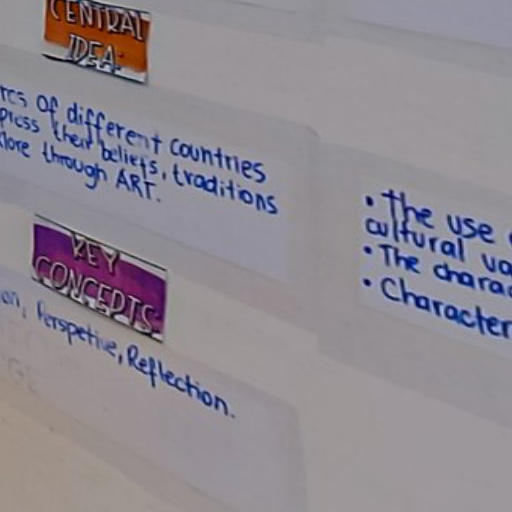 CENTRAL
IDEA:
of different countries
their beliefs, traditions
through ART.
KEY
CONCEPTS
Perspetive, Reflection.
• The use
cultural
• The
• Character